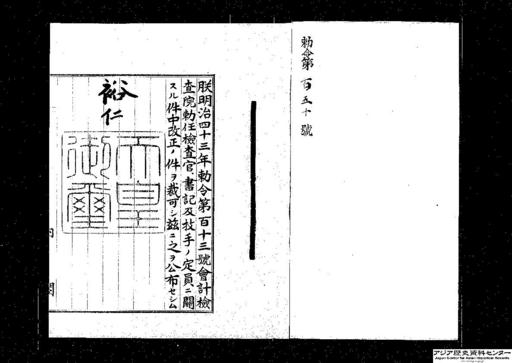 勅令第百五十號
朕明治四十三年勅令第百十三號會計檢
査院勅任檢査官、書記及技手ノ定員ニ關
スル件中改正ノ件ヲ裁可シ茲ニ之ヲ公布セシム
裕仁
天皇
御璽
内
閣
アジア歴史資料センター
Japan Center for Asian Historical Records